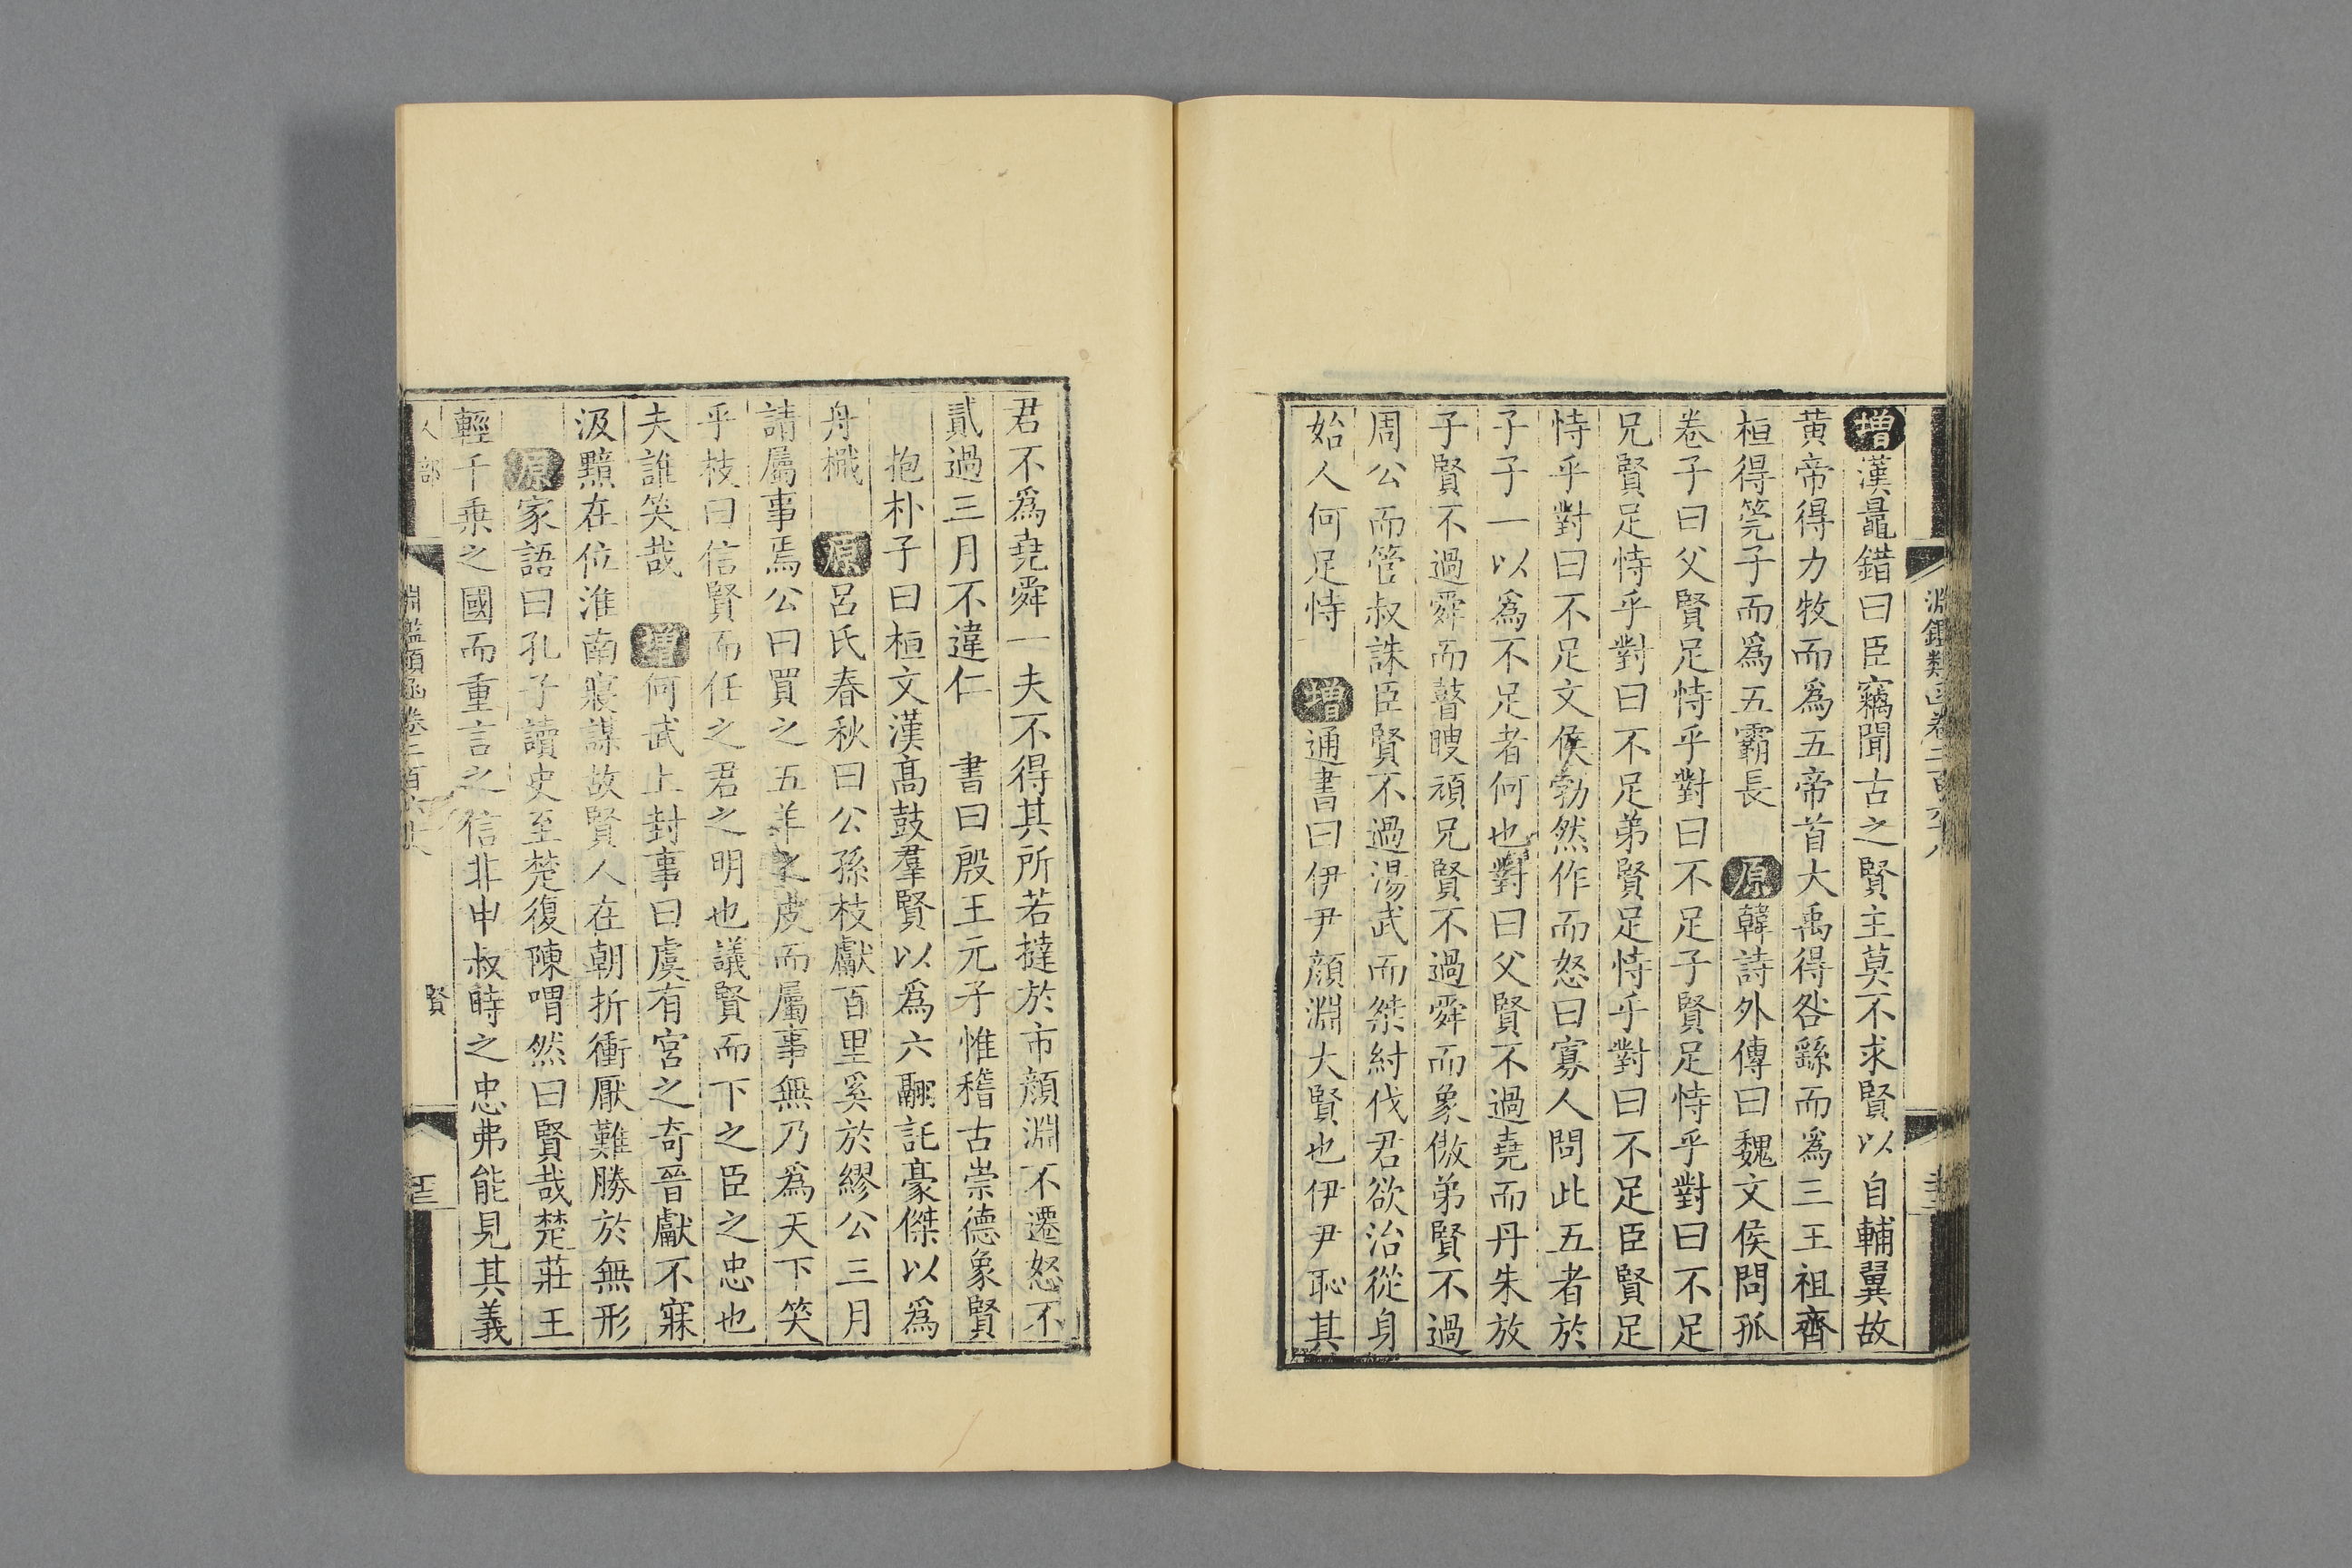 增漢鼂錯曰臣竊聞古之賢主莫不求賢以自輔翼故
黄帝得力牧而爲五帝首大禹得咎繇而爲三王祖齊
桓得筦子而爲五霸長 原韓詩外傳曰魏文侯問孤
卷子曰父賢足恃乎對曰不足子賢足恃乎對曰不足
兄賢足恃乎對曰不足弟賢足恃乎對曰不足臣賢足
恃乎對曰不足文侯勃然作而怒曰寡人問此五者於
子子一以爲不足者何也對曰父賢不過堯而丹朱放
子賢不過舜而瞽瞍頑兄賢不過舜而象傲弟賢不過
周公而管叔誅臣賢不過湯武而桀紂伐君欲治從身
始人何足恃 增通書曰伊尹顔淵大賢也伊尹恥其
君不爲堯舜一夫不得其所若撻於市顔淵不遷怒不
貳過三月不違仁 書曰殷王元子惟稽古崇德象賢
抱朴子曰桓文漢髙鼓羣賢以爲六翮託豪傑以爲
舟檝 原呂氏春秋曰公孫枝獻百里奚於繆公三月
請屬事焉公曰買之五羊之皮而屬事無乃爲天下笑
乎枝曰信賢而任之君之明也議賢而下之臣之忠也
夫誰笑哉 增何武上封事曰虞有宮之奇晉獻不寐
汲黯在位淮南寢謀故賢人在朝折衝厭難勝於無形
原家語曰孔子讀史至楚復陳喟然曰賢哉楚莊王
輕千乗之國而重言之信非申叔時之忠弗能見其義
人部
淵鑑類函卷二百六十八
賢